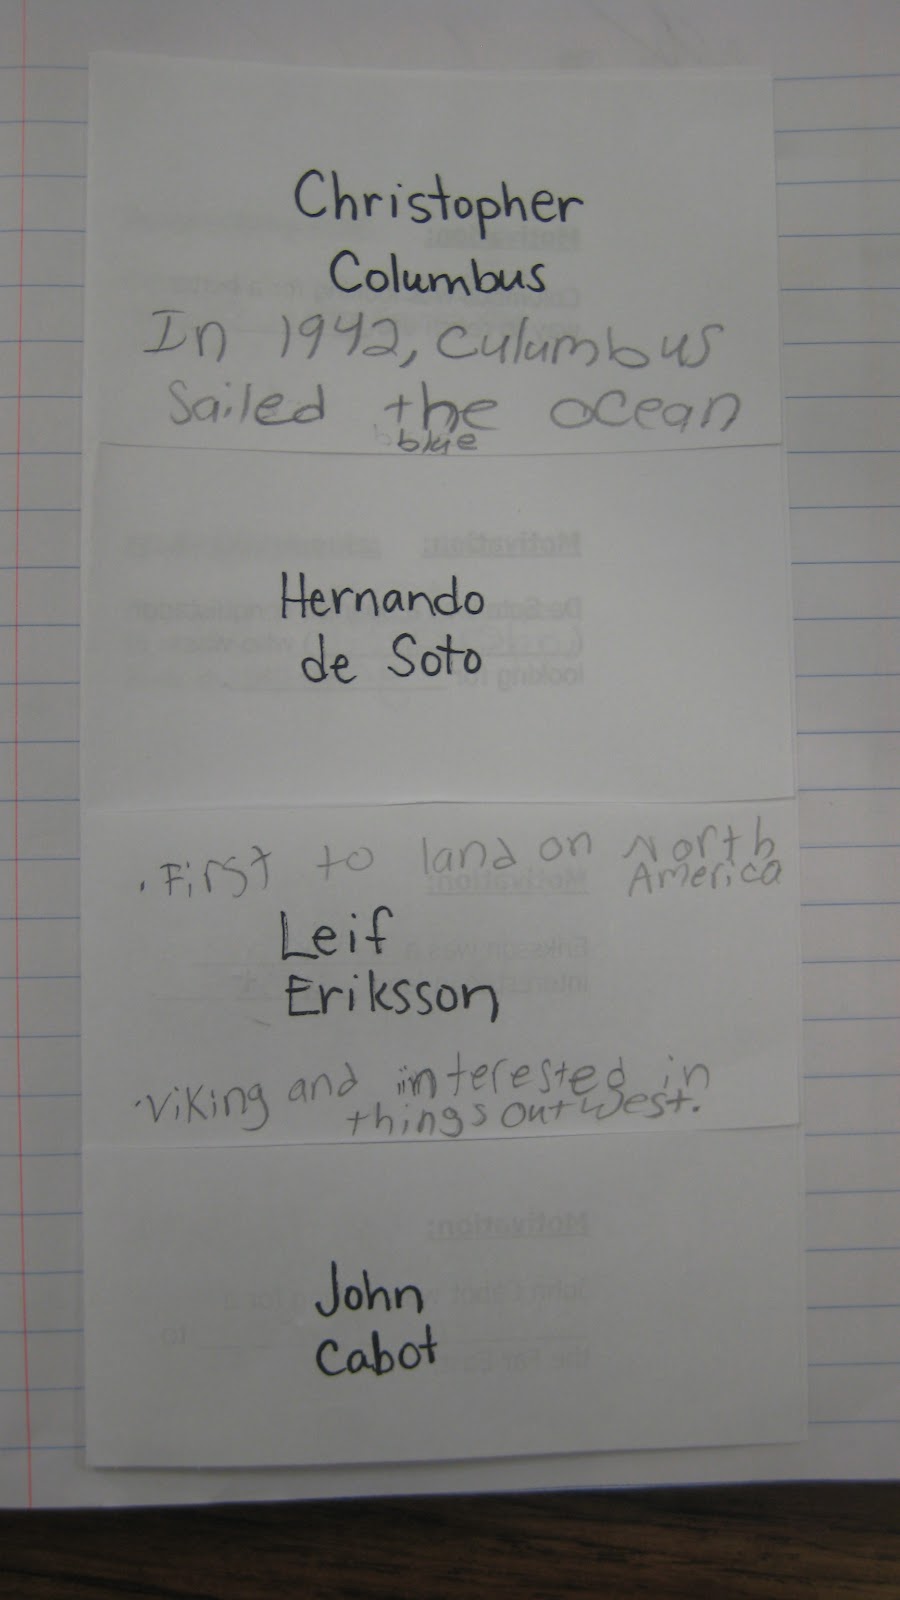 Christopher
Columbus
In 1942, Culumbus
Sailed the ocean
blue
Hernando
de Soto
. First to land on North
America
Leif
Eriksson
. Viking and interested in
things out west.
John
Cabot